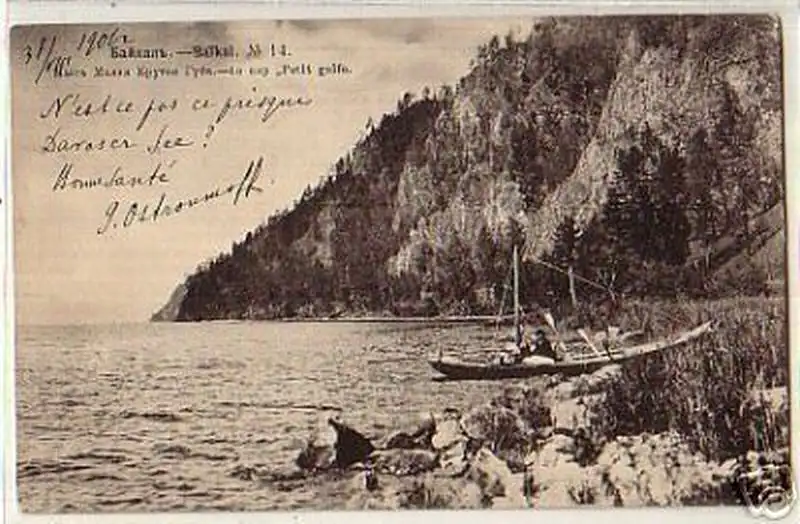 31/VII 1906 г.
Байкалъ.—Baïkal. № 14.
Мысъ Малая Крутая Губа.—Le cap „Petit golfe.
N'est ce pas ce presque
Davoser See?
Bonne santé
J. Ostroumoff.